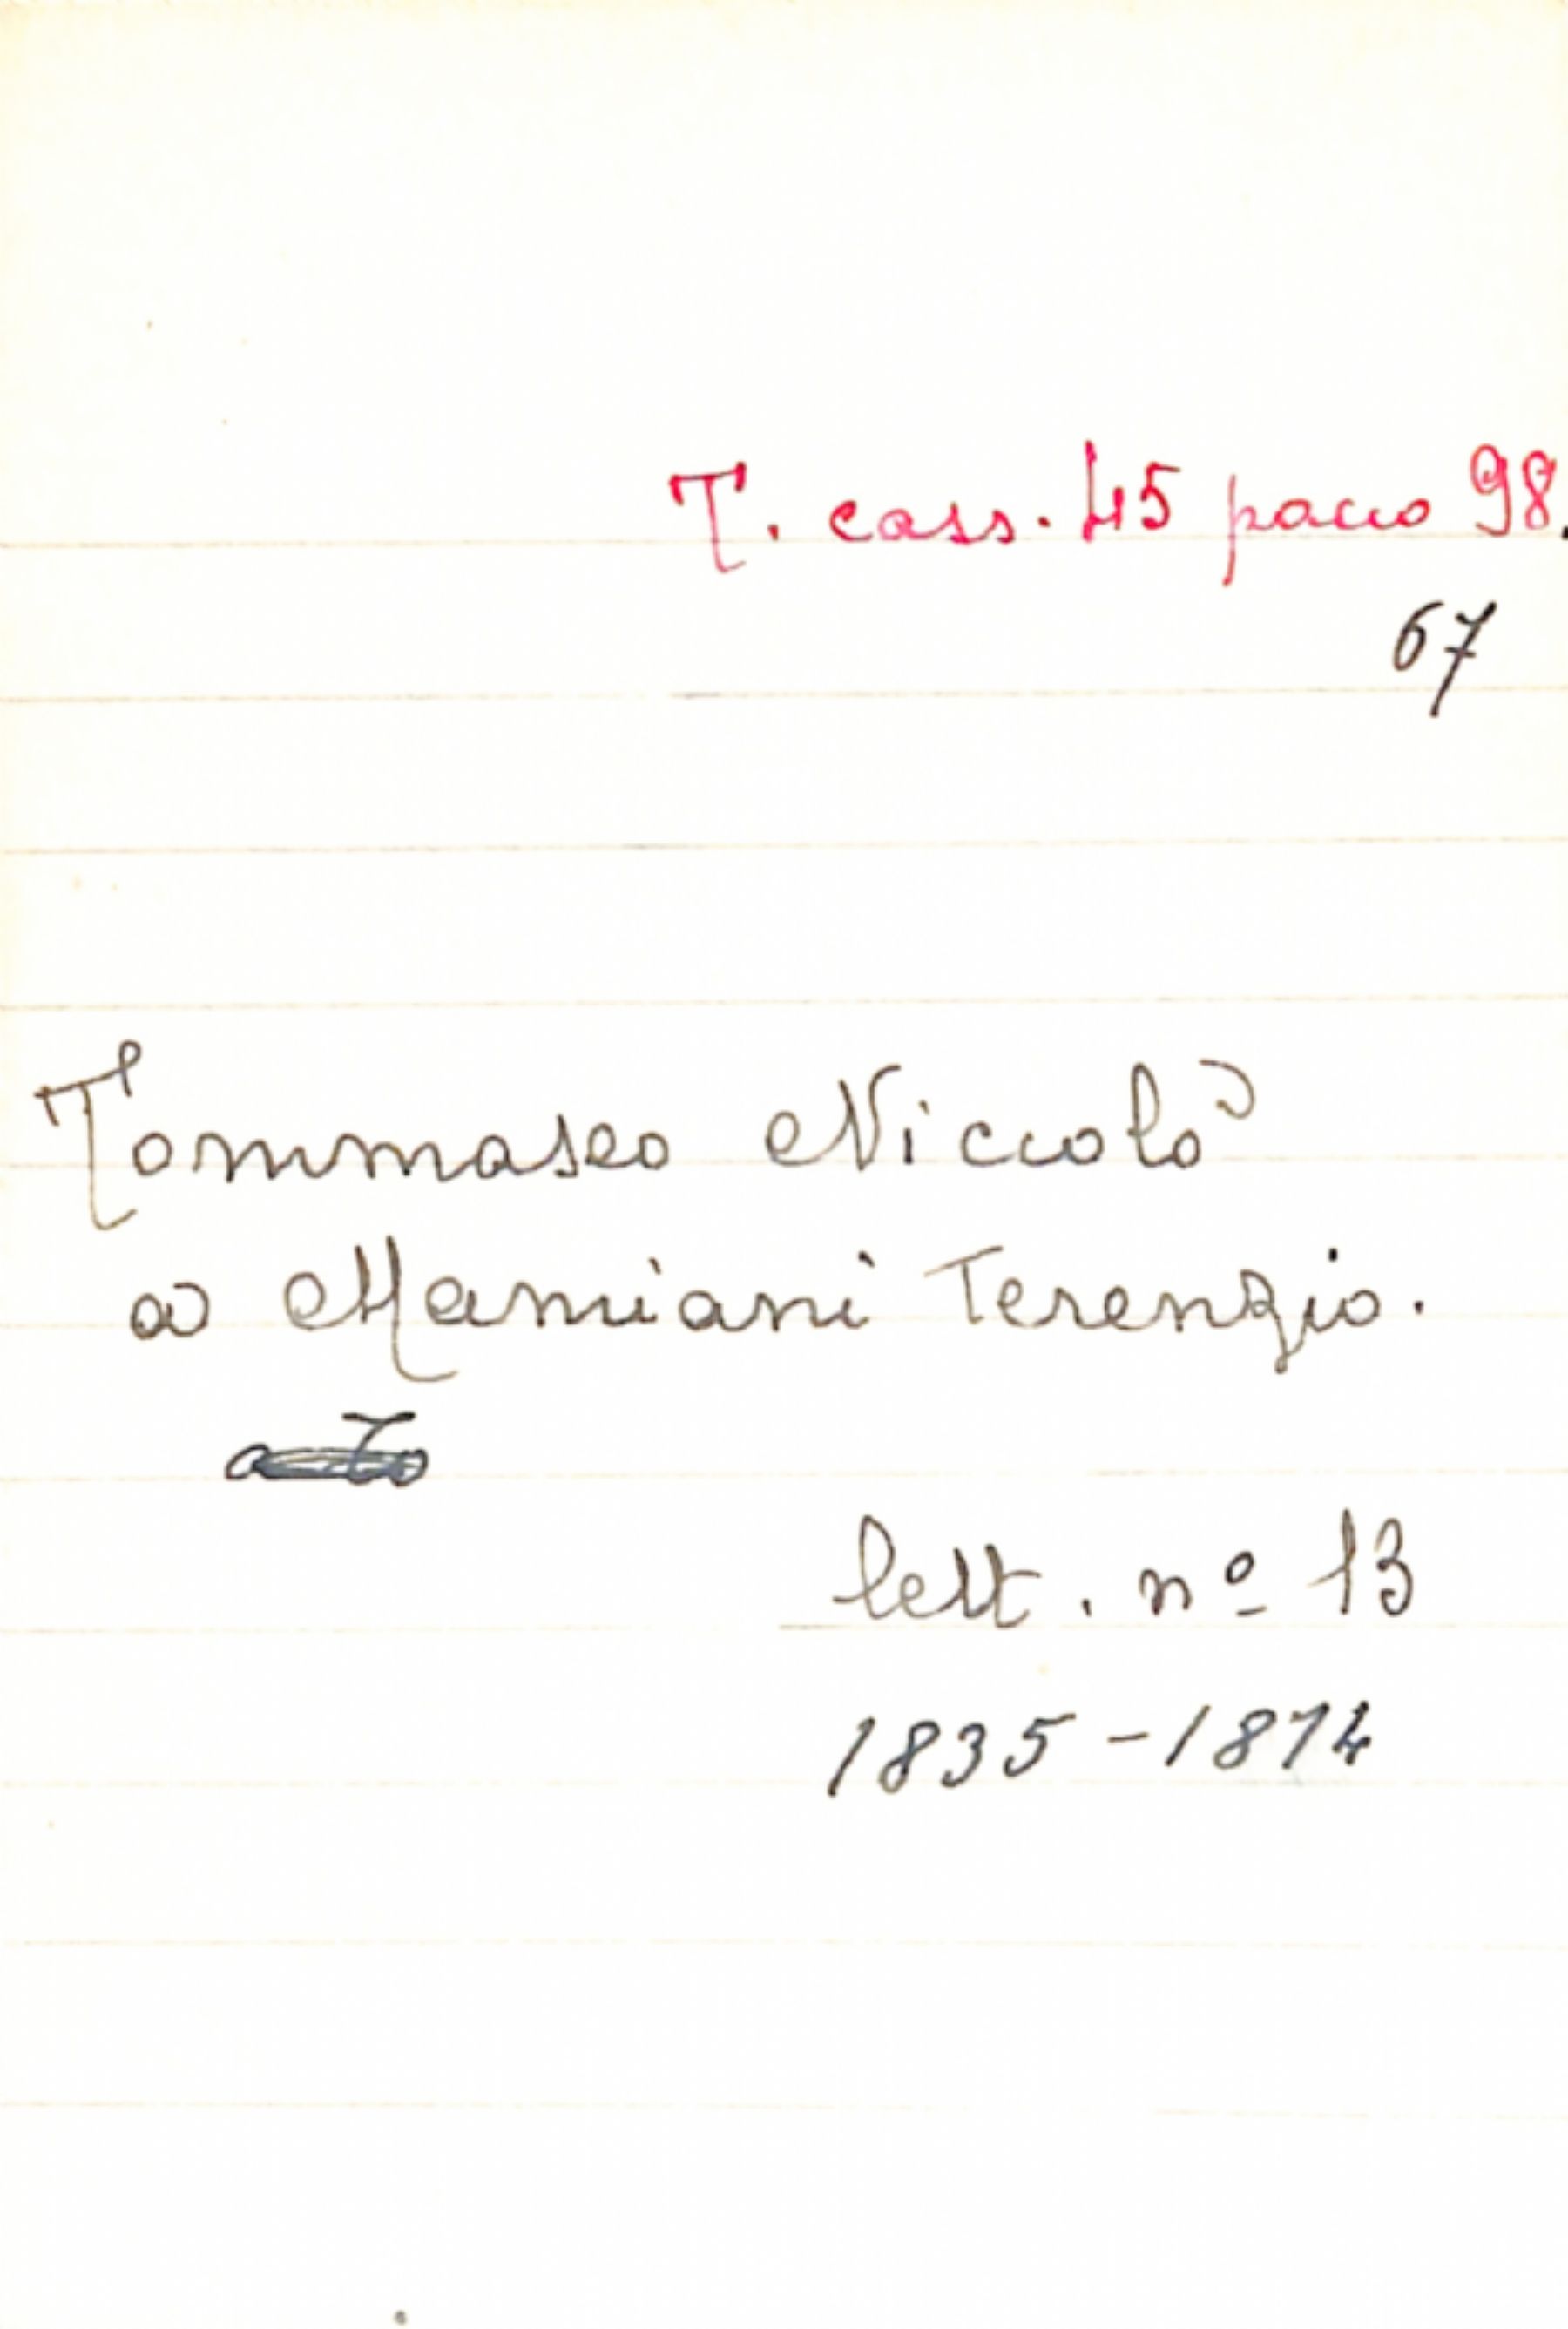 T. cass. 45 pacco 98.
67
Tommaseo Niccolò
a Mamiani Terenzio.
lett. nº 13
1835-1874